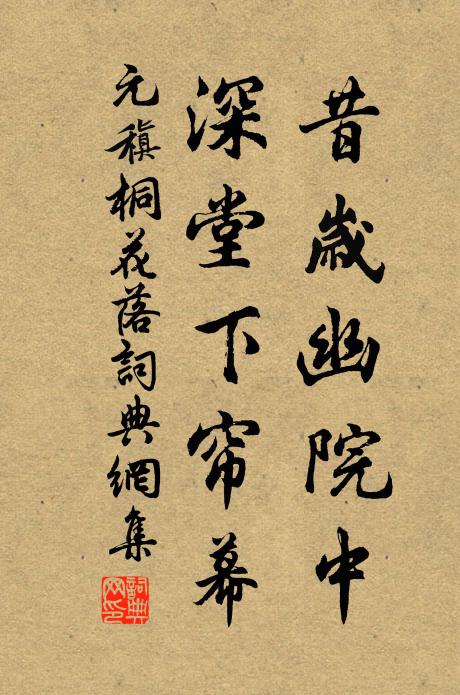 昔歲幽院中
深堂下帘幕
元稹桐花落詞典網集
詞典網印